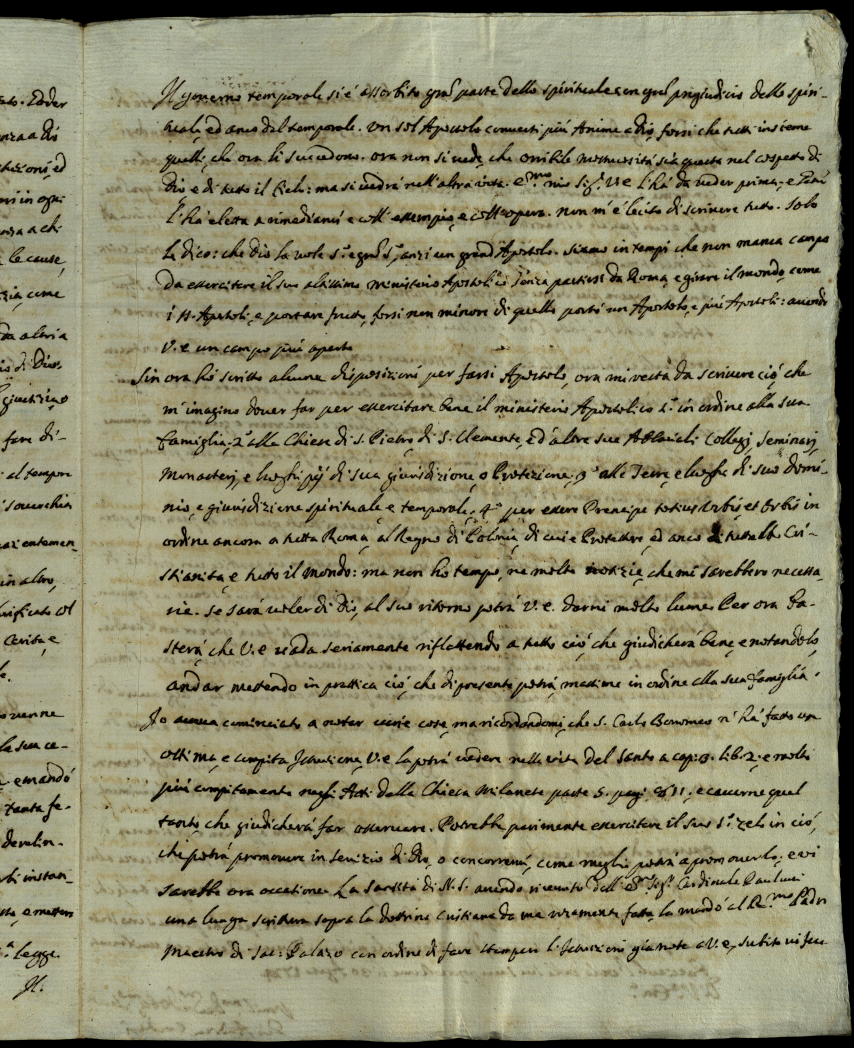 ato. Ed er
enza a Dio
tuzioni, ed
mi in ogni
enza a chi
le cause,
zia, come
da altri a
is di Dio.
giustizia, o
fare di-
al tempo
souerchia
pazientemen
in altro,
Carità, e
ouenne
la sua ca-
e mandò
tanta fe-
deuotion.
instan-
legge.
Il.
Il gouerno temporale si è assorbito gran parte dello spirituale con gran pregiudicio dello spiri-
tuale, ed anco del temporale. Un sol Apostolo conuertì più Anime a Dio, forsi che tutti insieme
quelli, che ora li succedono. ora non si uede, che orribile mostruosità sia questa nel cospetto di
Dio e di tutto il Cielo: ma si uedrà nell'altra uita. Em.mo mio Sig.r V.E. l'hà da ueder prima, e
l'hà eletta a rimediarui e coll'essempio, e coll'opera. non m'è lecito di scriuere tutto. Solo
le dico: che Dio la uole S.to e gran S.to, anzi un grand'Apostolo. Siamo in tempi che non manca campo
da essercitare il suo altissimo ministerio Apostolico senza partirsi da Roma, e girare il mondo, come
i SS. Apostoli, e portare frutto, forsi non minore di quello portò un Apostolo, e più Apostoli: auendo
V.E. un campo più aperto
Sin ora hò scritto alcune disposizioni per farsi Apostolo, ora mi resta da scriuere ciò che
m'imagino douer far per essercitare bene il ministerio Apostolico 1.o in ordine alla sua
famiglia, 2.o alle Chiese di S. Pietro di S. Clemente, ed altre sue Abbaziali, Collegj, Seminarj,
Monasterj, e luoghi pij di sua giurisdizione o Protezione, 3.o alle Terre, e luoghi di suo domi-
nio, e giurisdizione spirituale e temporale, 4.o per essere Prencipe totius Urbis, et Orbis in
ordine ancora a tutta Roma, al Regno di Polonia, di cui è Protettore, ed anco di tutta la Cri-
stianità e tutto il mondo: ma non hò tempo, ne molte notizie, che mi sarebbero necessa-
rie. se sarà uoler di Dio, al suo ritorno potrà V.E. darmi molto lume. Per ora ba-
sterà che V.E. uada seriamente riflettendo a tutto ciò, che giudicherà bene, e notandolo,
andar mettendo in prattica ciò, che di presente potrà, massime in ordine alla sua famiglia.
Io aueua cominciato a notar uarie cose, ma ricordandomi, che S. Carlo Borromeo n'hà fatto una
ottima, e compita Istruzione, V.E. la potrà uedere nella uita del Santo a cap: 3. lib. 2. e molto
più compitamente negli Atti della Chiesa Milanese parte 5. pag. e cauerne quel
tanto che giudicherà far osseruare. Potrebbe parimente essercitare il suo S.to zelo in ciò,
che potrà promouere in seruizio di Dio, o concorrerui, come meglio potrà a promouerlo; e ui
sarebbe ora occasione. La Santità di N.S. auendo riceuuto dall'Em.mo Sig.r Cardinale Paulucci
una lunga scrittura sopra la dottrina cristiana da me ultimamente fatta, la mandò al R.mo Padre
Maestro di Sac: Palazo con ordine di fare stampare l'Istruzioni già note a V.E., subito ui fu